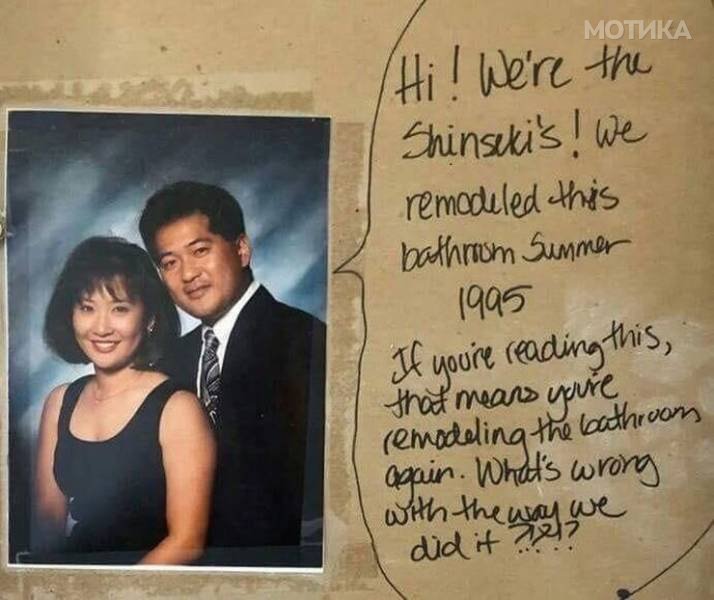 МОТИКА
Hi! We're the
Shinseki's! We
remodeled this
bathroom Summer
1995
If you're reading this,
that means you're
remodeling the bathroom
again. What's wrong
with the way we
did it ?!?!?